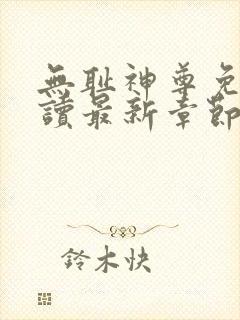 無耻神尊免
讀最新章節
鈴木快